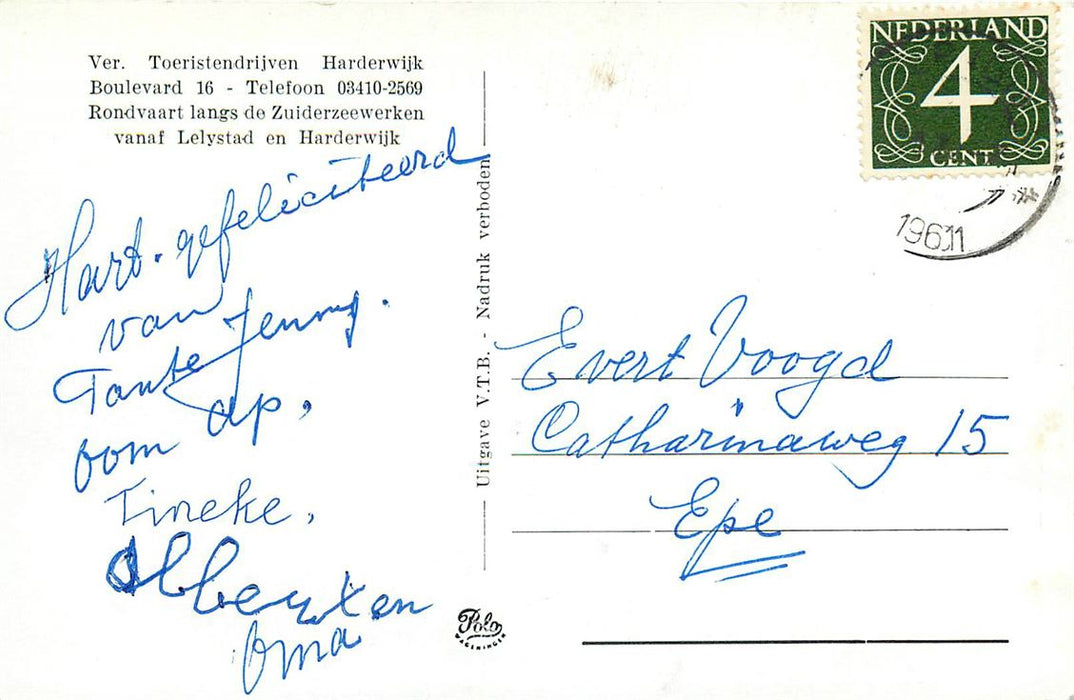 Ver. Toeristendrijven Harderwijk
Boulevard 16 - Telefoon 03410-2569
Rondvaart langs de Zuiderzeewerken
vanaf Lelystad en Harderwijk
Hart. gefeliciteerd
van
Tante Jenny.
oom Ap,
Tineke,
en
Oma
Uitgave V.T.B. - Nadruk verboden
Polo
WAGENINGEN
NEDERLAND
4
CENT
1961
Evert Voogd
Catharinaweg 15
Epe